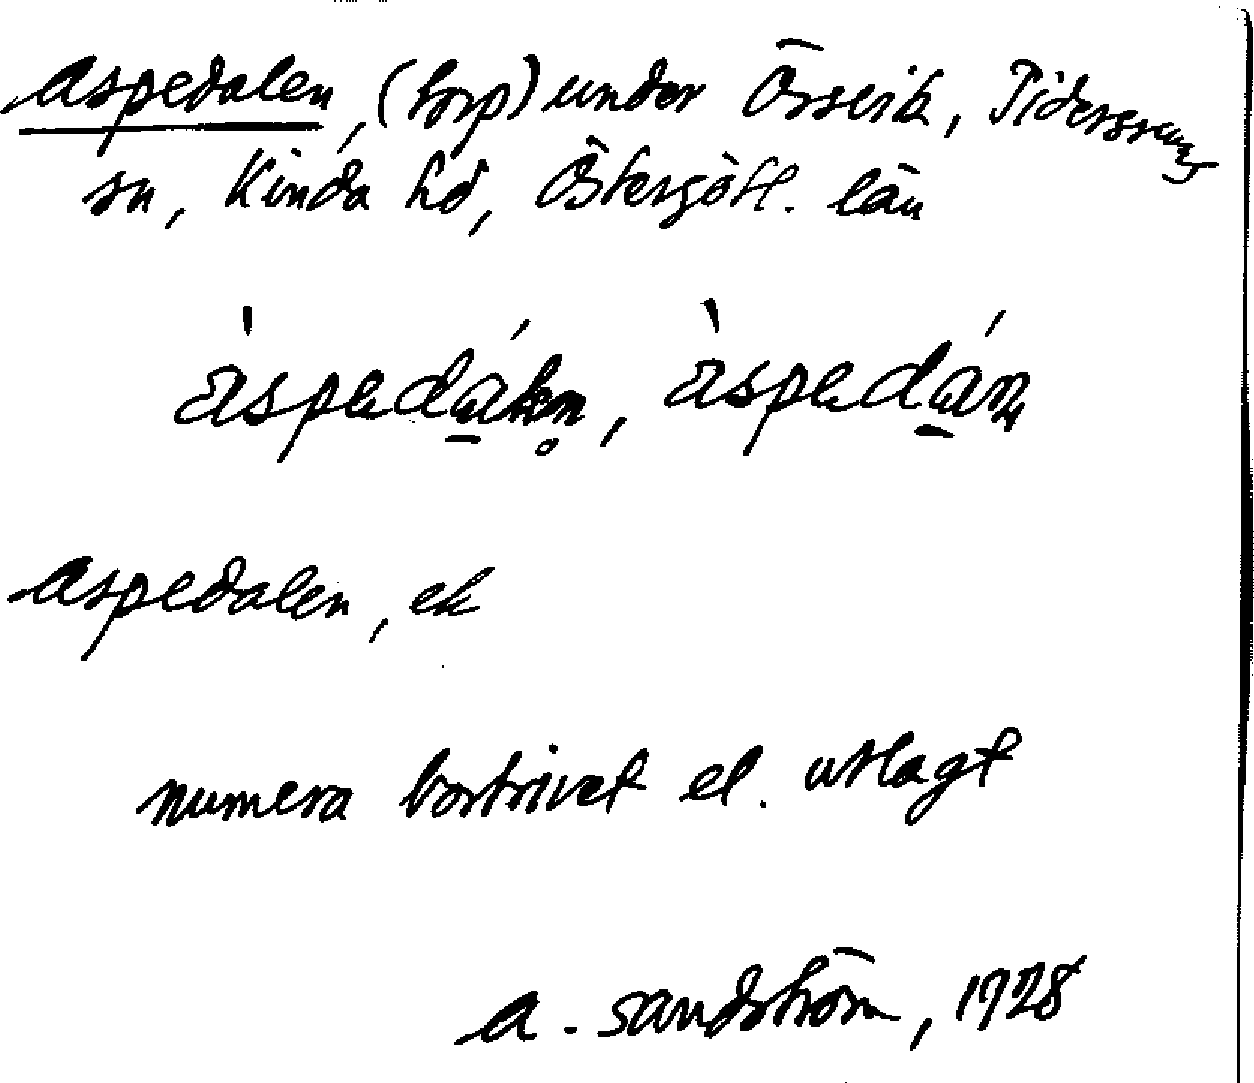 Aspedalen, (torp) under Örsvik, Tidersrums
sn, Kinda hd, Östergötl. län
àspedálen, àspedán
Aspedalen, ek
numera bortrivet el. utlagt
A. Sandström, 1928